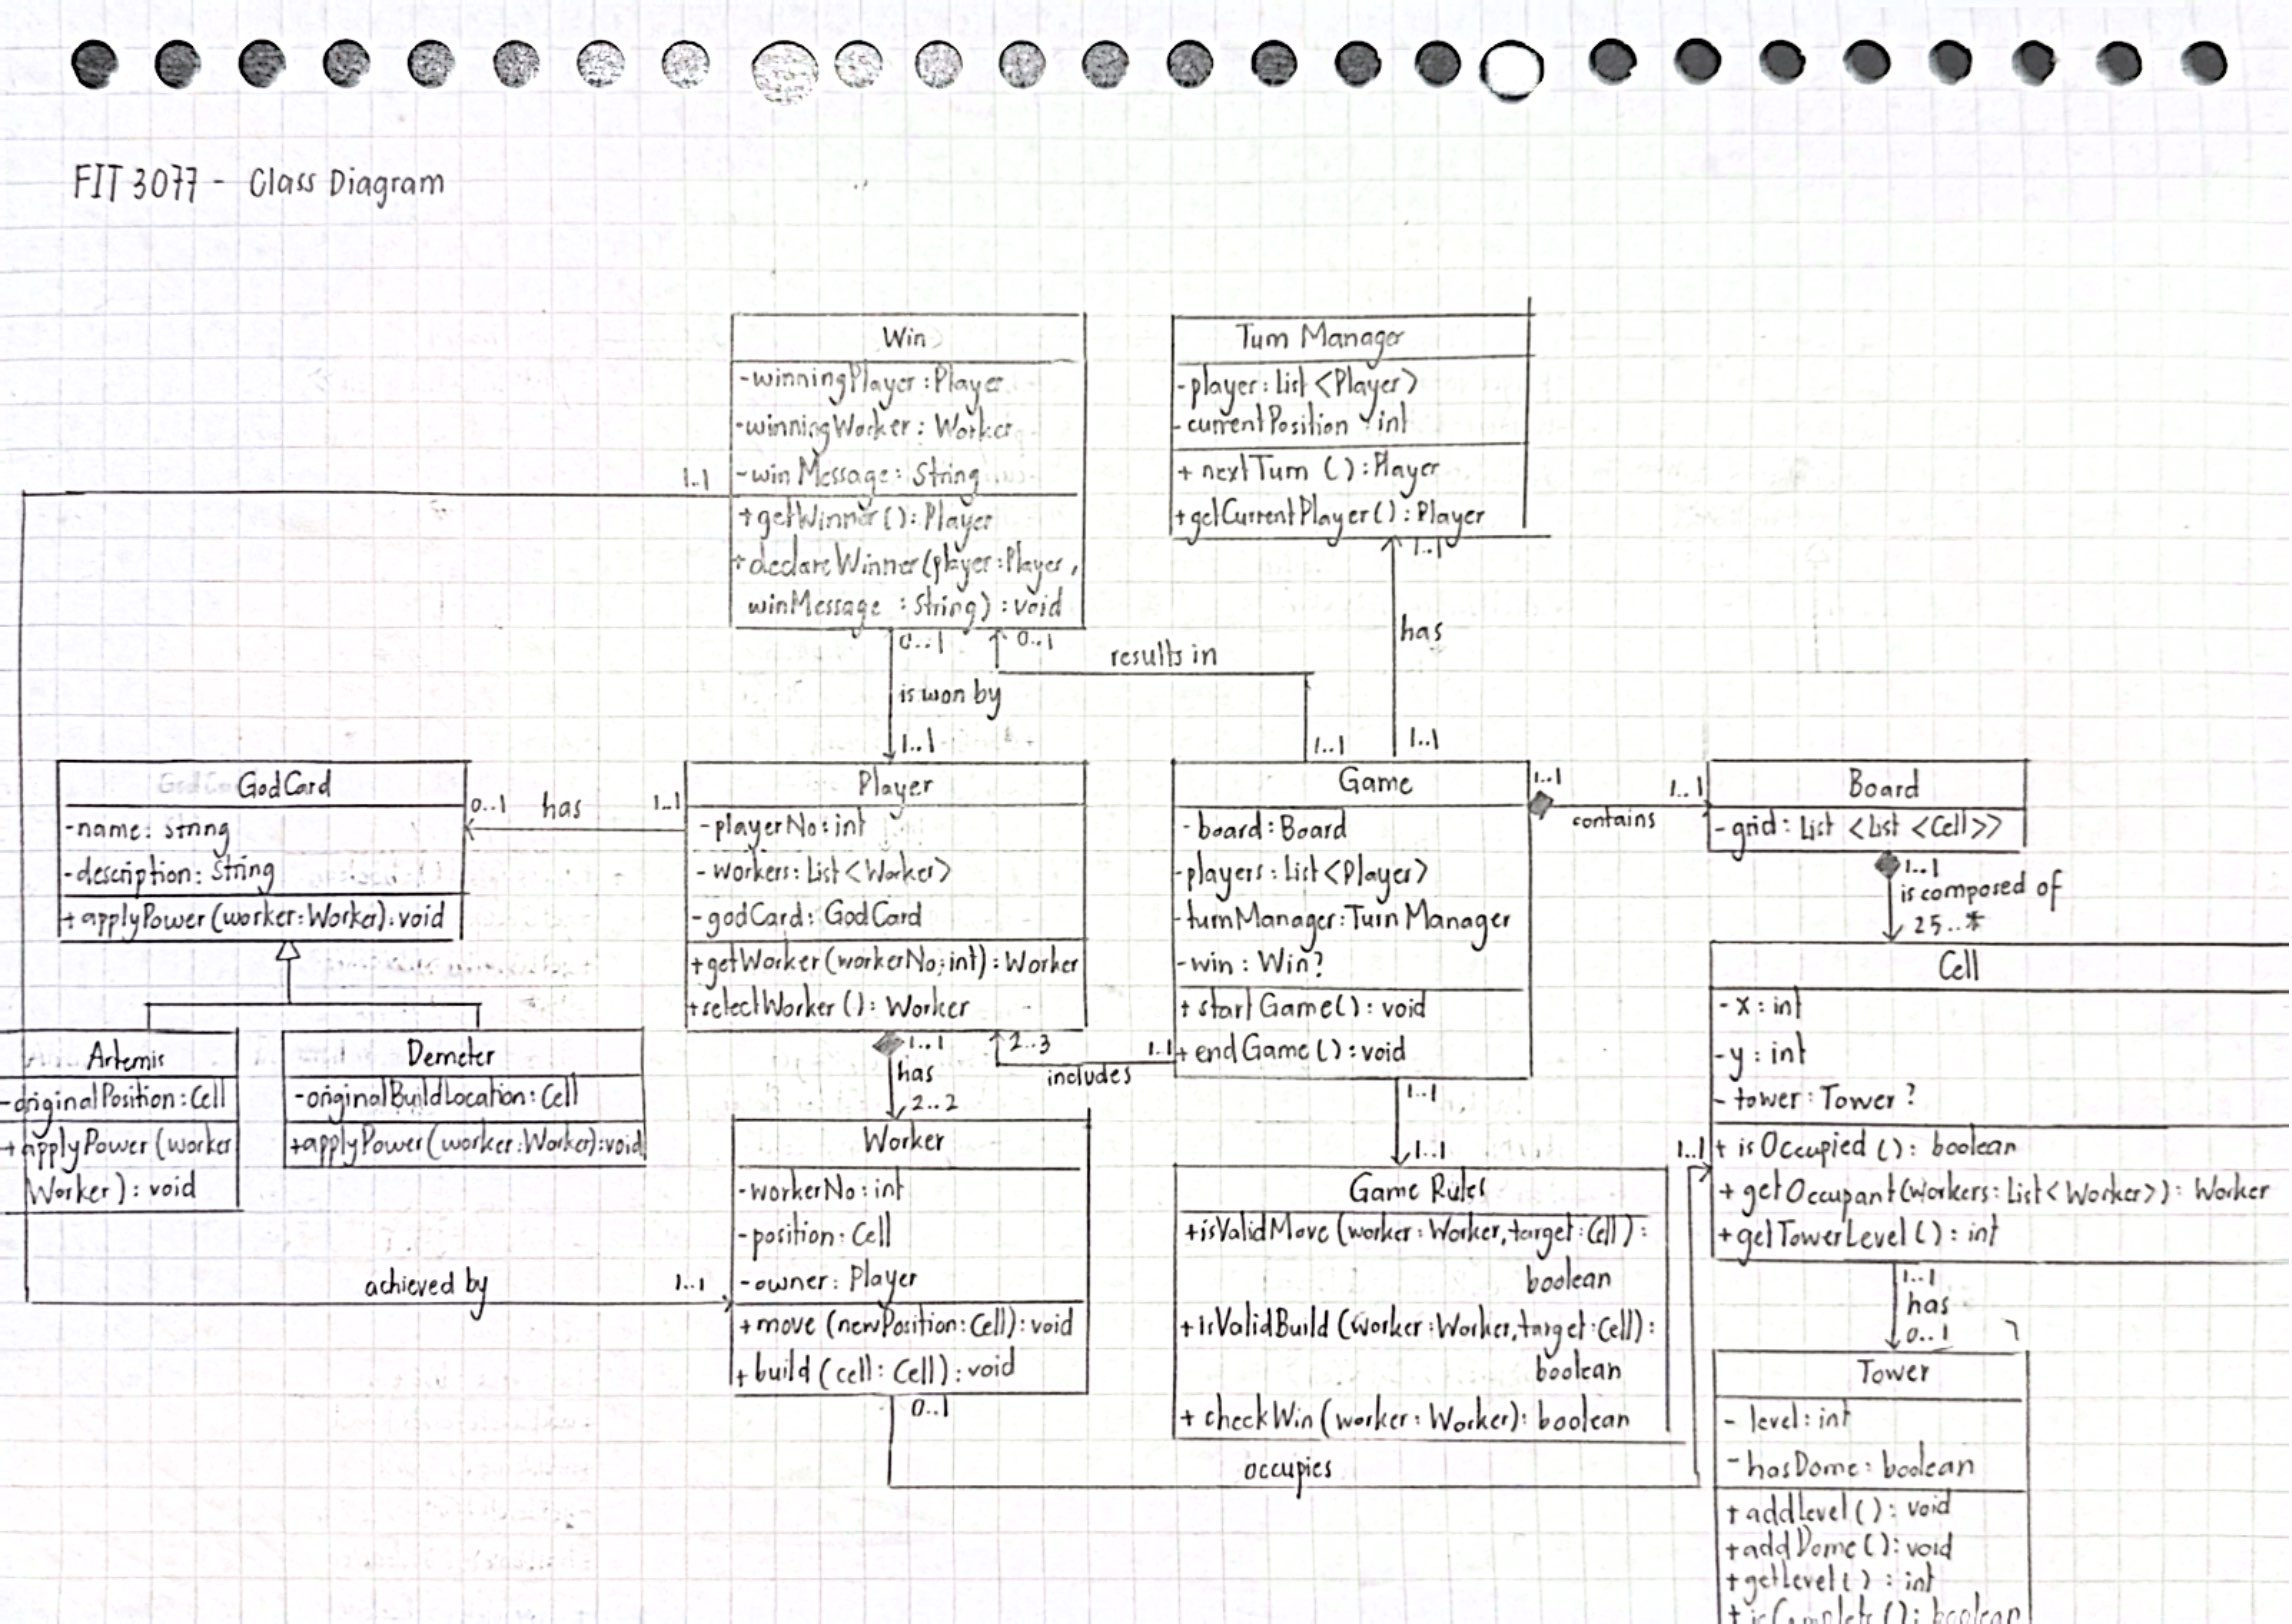 FIT 3077 - Class Diagram
Win
-winningPlayer : Player
-winningWorker : Worker
-winMessage : String
+getWinner() : Player
+declareWinner(player:Player,
winMessage : String) : void
Turn Manager
-player : List <Player>
-currentPosition : int
+ nextTurn () : Player
+getCurrentPlayer() : Player
1..1
1..1
0..1
0..1
results in
has
is won by
1..1
1..1
1..1
GodCard
-name: String
-description: String
+applyPower(worker:Worker): void
0..1
has
1..1
Player
-playerNo: int
-workers: List<Worker>
-godCard: GodCard
+getWorker(workerNo:int) : Worker
+selectWorker () : Worker
Game
-board : Board
-players : List<Player>
-turnManager: Turn Manager
-win : Win?
+ startGame() : void
+ endGame() : void
1..1
contains
1..1
Board
-grid: List <List <Cell>>
1..1
is composed of
25..*
Cell
- x : int
- y : int
- tower: Tower ?
+ isOccupied () : boolean
+ getOccupant(workers: List<Worker>) : Worker
+ getTowerLevel () : int
Artemis
-originalPosition : Cell
+applyPower (worker
Worker) : void
Demeter
-originalBuildLocation: Cell
+applyPower(worker:Worker):void
1..1
has
2..2
2..3
includes
1..1
Worker
-workerNo: int
-position: Cell
-owner: Player
+ move (newPosition: Cell): void
+ build (cell: Cell) : void
1..1
1..1
Game Rules
+isValidMove (worker:Worker, target:Cell) :
boolean
+isValidBuild (worker:Worker, target:Cell) :
boolean
+ checkWin (worker: Worker): boolean
1..1
achieved by
1..1
0..1
occupies
1..1
has
0..1
Tower
- level: int
- hasDome: boolean
+ addLevel () : void
+addDome () : void
+getLevel( ) : int
+ isComplete () : boolean